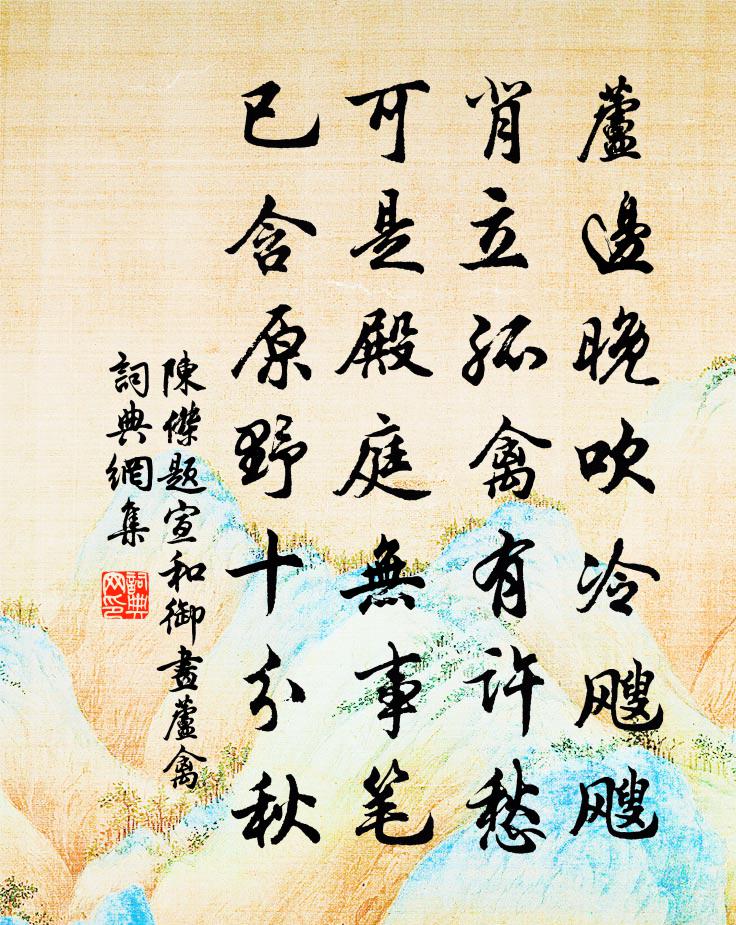 蘆邊晚吹冷颼颼
背立孤禽有许愁
可是殿庭無事笔
已含原野十分秋
陳傑題宣和御畫蘆禽
詞典網集
詞典
网印